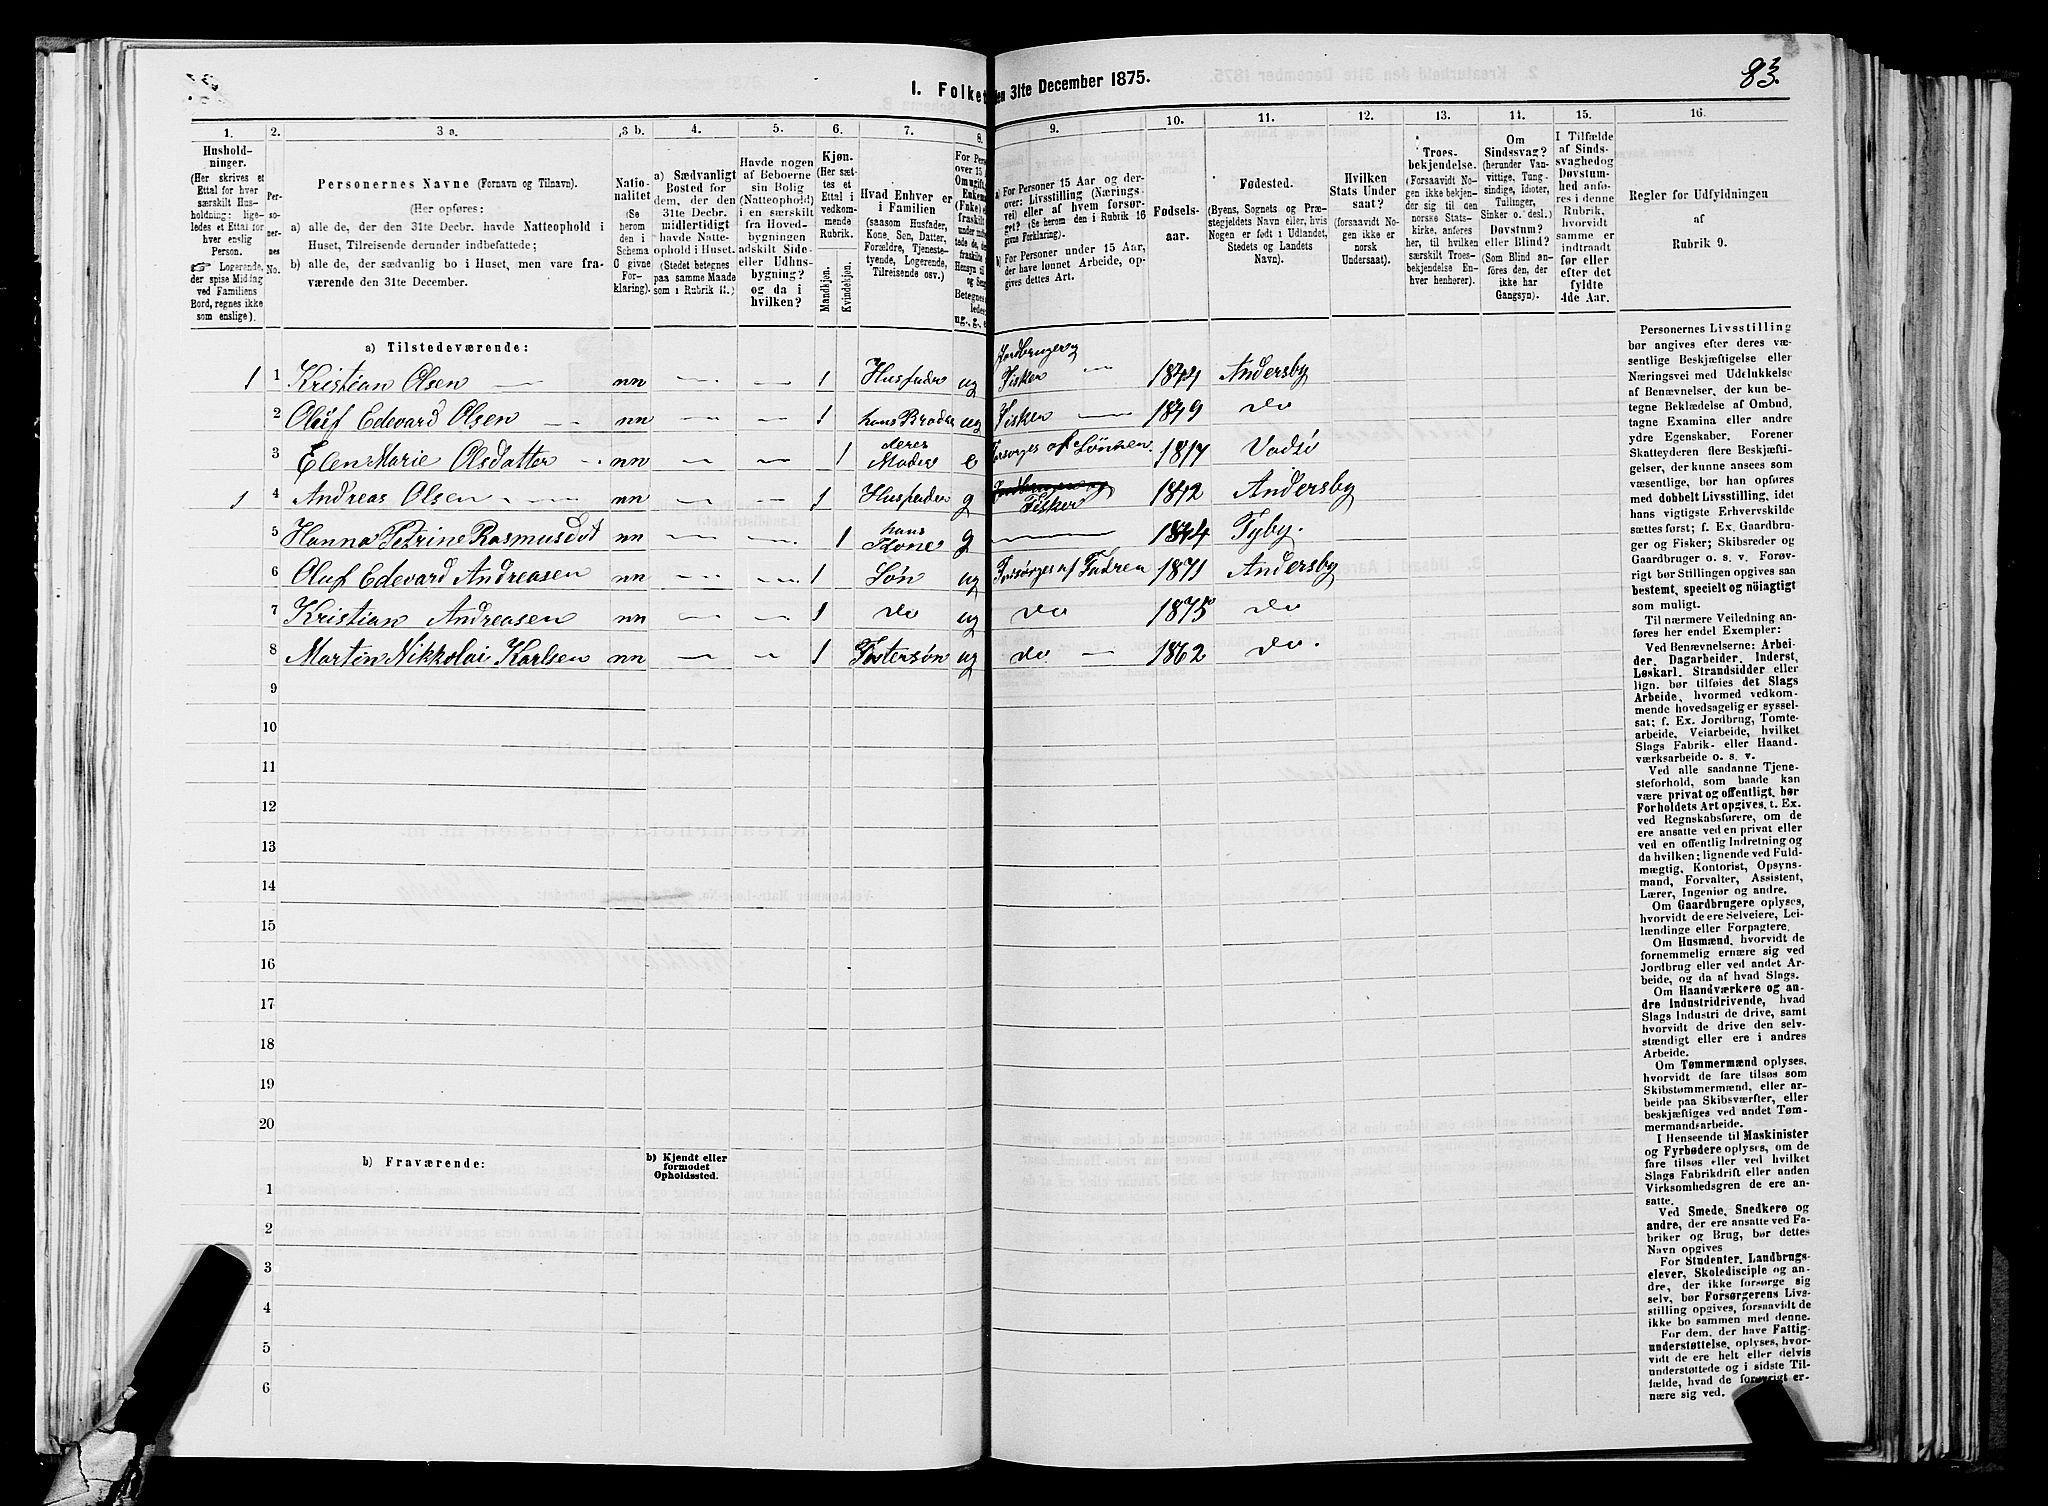 1. Folket
den 31te December 1875.
83.
1.
2.
3 a.
3 b.
4.
5.
6.
7.
8.
9.
10.
11.
12.
13.
14.
15.
16.
Hushold-
ninger.
(Her skrives et
Ettal for hver
særskilt Hus-
holdning; lige-
ledes et Ettal
for hver
enslig
Person.
☞ Logerende,
der spise Middag
ved Familiens
Bord, regnes ikke
som enslige).
Per-
so-
ner-
nes
No.
Personernes Navne (Fornavn og Tilnavn).
(Her opføres:
a) alle de, der den 31te Decbr. havde Natteophold i
Huset, Tilreisende derunder indbefattede;
b) alle de, der sædvanlig bo i Huset, men vare fra-
værende den 31te December.
Natio-
nalitet
(Se
herom
den i
Schema
C givne
For-
klaring).
a) Sædvanligt
Bosted for
dem, der den
31te Decbr.
midlertidigt
havde Natte-
ophold i Huset.
(Stedet betegnes
paa samme Maade
som i Rubrik 11.)
Havde nogen
af Beboerne
sin Bolig
(Natteophold)
i en særskilt
fra Hoved-
bygningen
adskilt Side-
eller Udhus-
bygning?
og da i
hvilken?
Kjøn.
(Her sæt-
tes et
Ettal i
vedkom-
mende
Rubrik.
Mandkjøn.
Kvindekjøn.
Hvad Enhver er
i Familien
(saasom Husfader,
Kone, Søn, Datter,
Forældre, Tjeneste-
tyende, Logerende,
Tilreisende osv.)
a) For Personer 15 Aar og der-
over: Livsstilling (Nærings-
vei) eller af hvem forsør-
get? (Se herom den i Rubrik 16
givne Forklaring).
b) For Personer under 15 Aar,
der have lønnet Arbeide, op-
gives dettes Art.
Fødsels-
aar.
Fødested.
(Byens, Sognets og Præ-
stegjeldets Navn eller, hvis
Nogen er født i Udlandet,
Stedets og Landets
Navn).
Hvilken
Stats Under
saat?
(forsaavidt No-
gen ikke er
norsk
Undersaat).
Troes-
bekjendelse.
(Forsaavidt No-
gen ikke bekjen-
der sig til den
norske Stats-
kirke, anføres
her, til hvilken
særskilt Troes-
bekjendelse En-
hver henhører).
Om
Sindssvag?
(herunder Van-
vittige, Tung-
sindige, Idioter,
Tullinger,
Sinker o. desl.)
Døvstum?
eller Blind?
(Som Blind an-
føres den, der
ikke har
Gangsyn).
I Tilfælde
af Sinds-
svaghed og
Døvstum-
hed anfø-
res i denne
Rubrik,
hvorvidt
samme er
indtraadt
før eller
efter det
fyldte
4de Aar.
Regler for Udfyldningen
af
Rubrik 9.
a) Tilstedeværende:
Jordbruger og
1 1 Kristian Olsen nn — — 1 Husfader ug Fisker — 1844 Andersby
2 Oluf Edevard Olsen nn — — 1 hans Broder ug Fisker — 1849 do
3 Elen Marie Olsdatter nn — — 1 deres Moder e Forsørges af Sønnen 1817 Vadsö
1 4 Andreas Olsen nn — — 1 Husfader g Jordbruger og Fisker 1842 Andersby
5 Hanna Petrine Rasmusdat nn — — 1 hans Kone g — 1844 Tyby.
6 Oluf Edevard Andreasen nn — — 1 Søn ug Forsørges af Fadren 1871 Andersby
7 Kristian Andreasen nn — — 1 do ug do 1875 do
8 Martin Nikkolai Karlsen nn — — 1 Fostersøn ug do — 1862 do.
9
10
11
12
13
14
15
16
17
18
19
20
b) Fraværende:
b) Kjendt eller
formodet
Opholdssted.
1
2
3
4
5
6
Personernes Livsstilling
bør angives efter deres væ-
sentlige Beskjæftigelse eller
Næringsvei med Udelukkelse
af Benævnelser, der kun be-
tegne Beklædelse af Ombud,
tagne Examina eller andre
ydre Egenskaber. Forener
Skatteyderen flere Beskjæfti-
gelser, der kunne ansees som
væsentlige, bør han opføres
med dobbelt Livsstilling, idet
hans vigtigste Erhvervskilde
sættes først; f. Ex. Gaardbru-
ger og Fisker; Skibsreder og
Gaardbruger o. s. v. Forøv-
rigt bør Stillingen opgives saa
bestemt, specielt og nöiagtigt
som muligt.
Til nærmere Veiledning an-
føres her endel Exempler:
Ved Benævnelserne: Arbei-
der, Dagarbeider, Inderst,
Løskarl, Strandsidder eller
lign. bør tilføies det Slags
Arbeide, hvormed vedkom-
mende hovedsagelig er syssel-
sat; f. Ex. Jordbrug, Tomte-
arbeide, Veiarbeide, hvilket
Slags Fabrik- eller Haand-
værksarbeide o. s. v.
Ved alle saadanne Tjene-
steforhold, som baade kan
være privat og offentligt, bør
Forholdets Art opgives, t. Ex.
ved Regnskabsførere, om de
ere ansatte ved en privat eller
ved en offentlig Indretning og
da hvilken; lignende ved Fuld-
mægtig, Kontorist, Opsyns-
mand, Forvalter, Assistent,
Lærer, Ingeniør og andre.
Om Gaardbrugere oplyses,
hvorvidt de ere Selveiere, Lei-
lændinge eller Forpagtere.
Om Husmænd, hvorvidt de
fornemmelig ernære sig ved
Jordbrug eller ved andet Ar-
beide, og da af hvad Slags.
Om Haandværkere og an-
dre Industridrivende, hvad
Slags Industri de drive, samt
hvorvidt de drive den selv-
stændigt eller ere i andres
Arbeide.
Om Tømmermænd oplyses,
hvorvidt de fare tilsøs som
Skibstømmermænd, eller ar-
beide paa Skibsværfter, eller
beskjæftiges ved andet Tøm-
mermandsarbeide.
I Henseende til Maskinister
og Fyrbødere oplyses, om de
fare tilsøs eller ved hvilket
Slags Fabrikdrift eller anden
Virksomhedsgren de ere an-
satte.
Ved Smede, Snedkere og
andre, der ere ansatte ved Fa-
briker og Brug, bør dettes
Navn opgives
For Studenter, Landbrugs-
elever, Skoledisciple og an-
dre, der ikke forsørge sig
selv, bør Forsørgerens Livs-
stilling opgives, forsaavidt de
ikke bo sammen med denne.
For dem, der have Fattig-
understøttelse, oplyses, hvor-
vidt de ere helt eller delvis
understøttede og i sidste Til-
fælde, hvad de forøvrigt er-
nære sig ved.